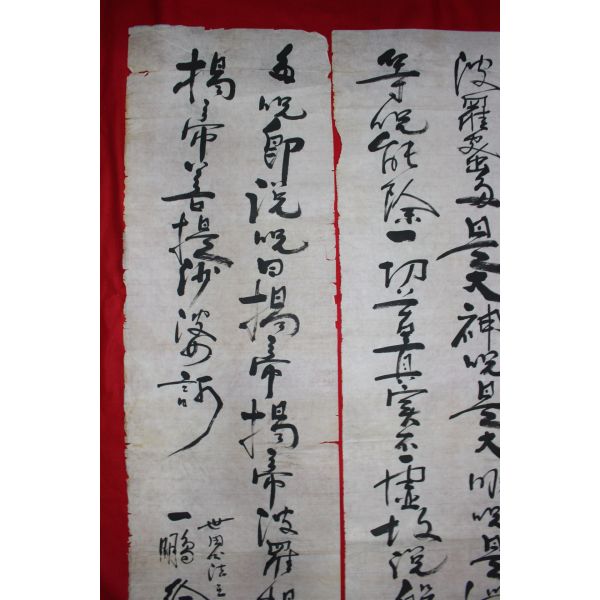 波羅蜜多是大神呪是大明呪是
等呪能除一切苦真實不虛故說般
多呪卽說呪曰揭帝揭帝波羅揭
揭帝菩提沙婆訶
世界法王
一鵬 徐